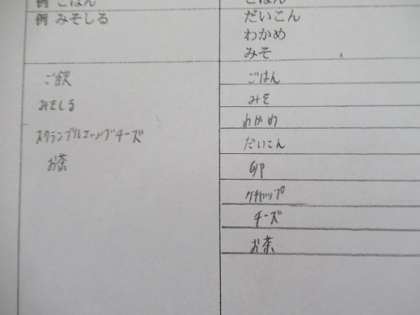 例 ごはん
ごはん
例 みそしる
だいこん
わかめ
みそ
ご飯
みそしる
スクランブルエッグチーズ
お茶
ごはん
みそ
わかめ
だいこん
卵
ケチャップ
チーズ
お茶